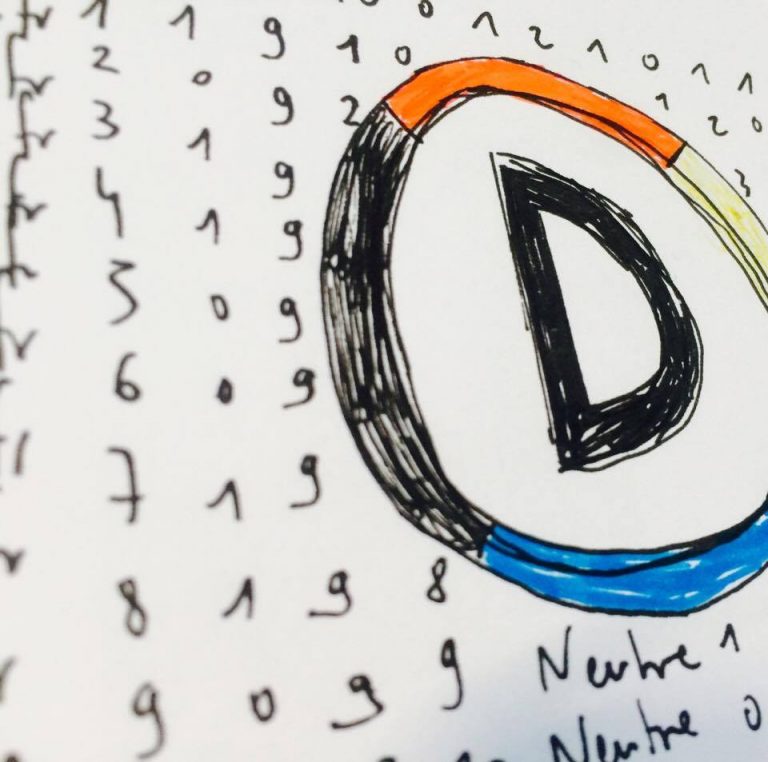 0 1 2 1 0 1 1
1 1 9 1 0
2 0 9 2 1 2 0
3 1 9 3
4 1 9
5 0 9
6 0 9
7 1 9
8 1 9 8
9 0 9 9 Neutre 1
Neutre 0
D